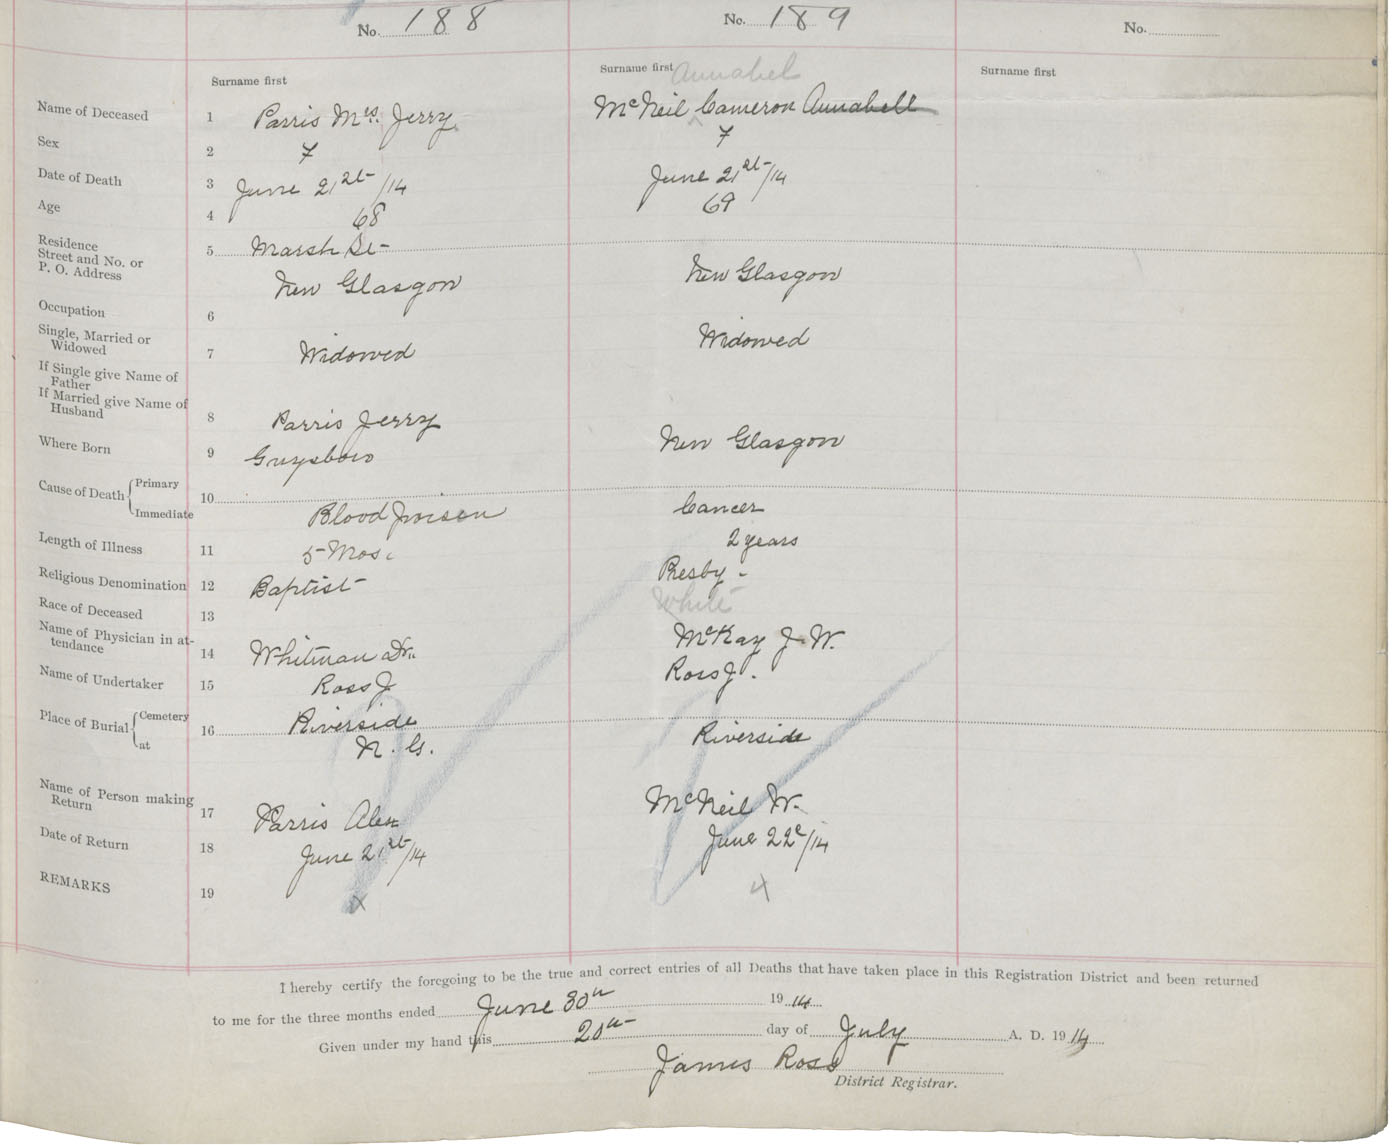 No. 188
No. 189
No.
Surname first
Surname first Annabel
Surname first
Name of Deceased 1 Parris Mrs. Jerry McNeil Cameron Annabell
Sex 2 F F
Date of Death 3 June 21st/14 June 21st/14
Age 4 68 69
Residence
Street and No. or
P. O. Address
5 Marsh St-
New Glasgow New Glasgow
Occupation 6
Single, Married or
Widowed
7 Widowed Widowed
If Single give Name of
Father
If Married give Name of
Husband
8 Parris Jerry
Where Born 9 Guysboro New Glasgow
Cause of Death { Primary
Immediate
10 Blood poison Cancer
Length of Illness 11 5-Mos. 2 years
Religious Denomination 12 Baptist Presby-
Race of Deceased 13 White
Name of Physician in at-
tendance
14 Whitman Dr. McKay J. W.
Name of Undertaker 15 Ross J Ross J.
Place of Burial { Cemetery
at
16 Riverside Riverside
N. G.
Name of Person making
Return
17 Parris Alex McNeil W.
Date of Return 18 June 21st/14 June 22e/14
REMARKS 19
x x
I hereby certify the foregoing to be the true and correct entries of all Deaths that have taken place in this Registration District and been returned
to me for the three months ended June 30th 1914
Given under my hand this 20th day of July A. D. 1914
James Ross
District Registrar.